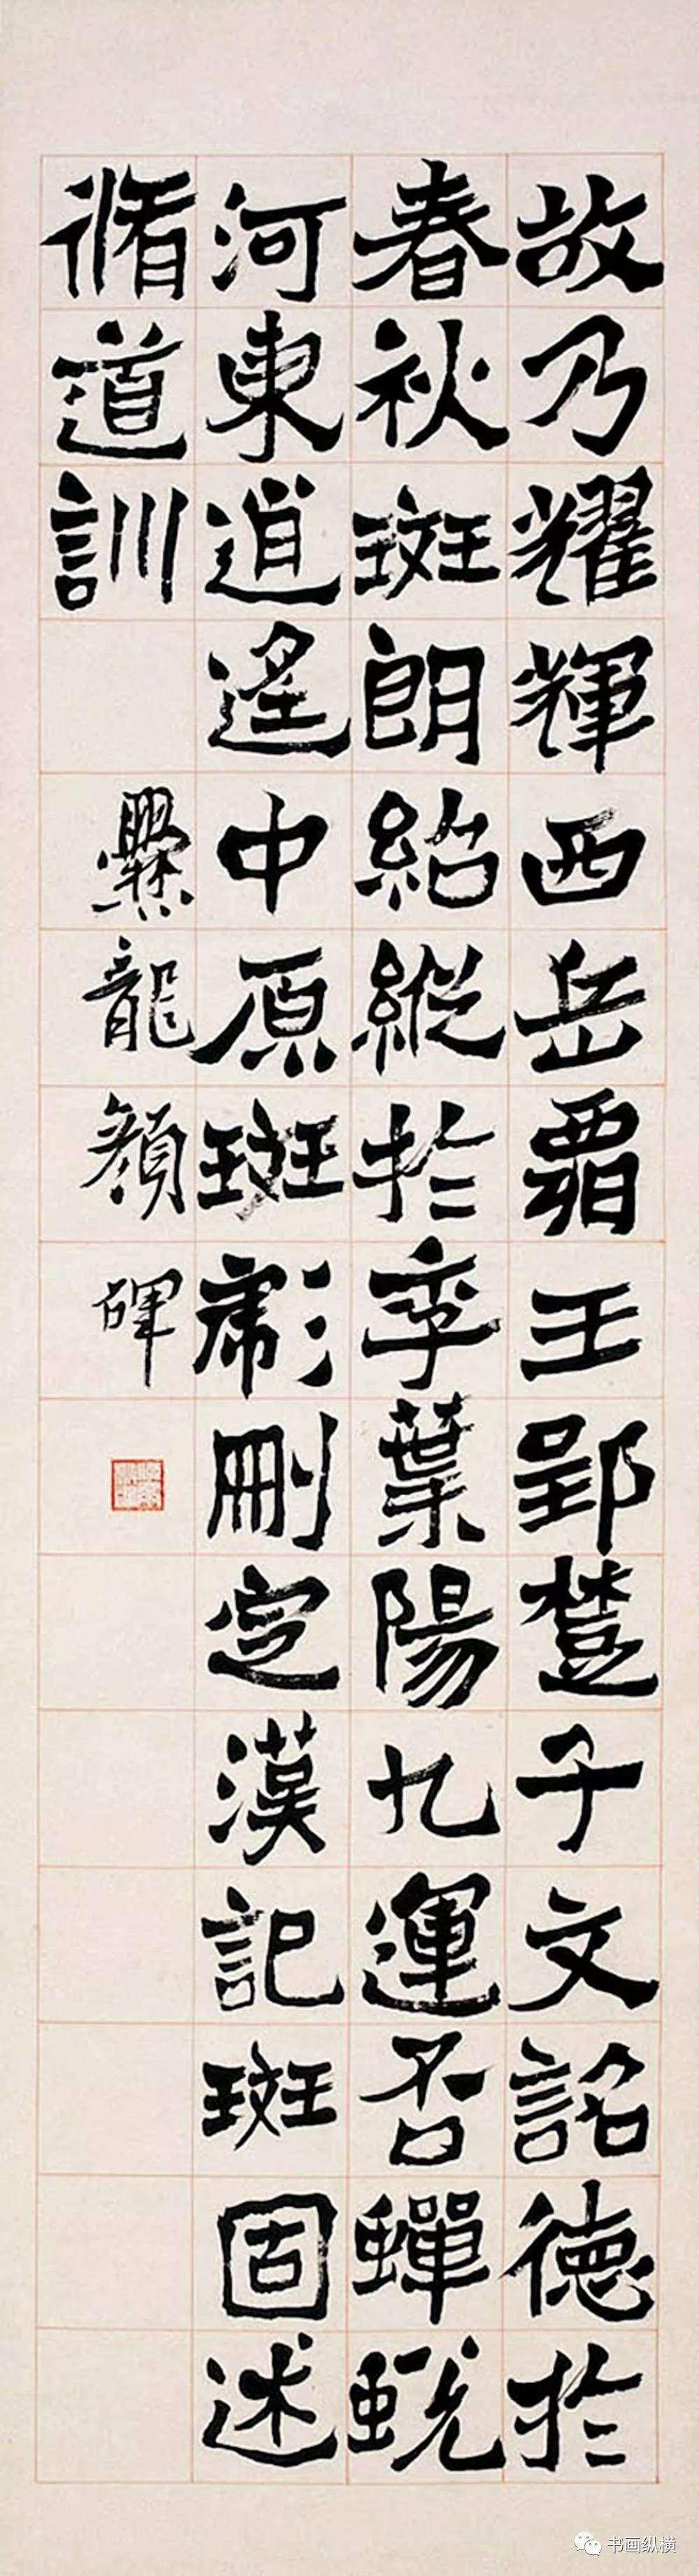 故乃耀輝西岳霸王郢楚子文詺德扵
春秋斑朗紹縱扵季葉陽九運否蟬蛻
河東逍遙中原斑彪刪定漢記斑固述
脩道訓
爨龍顏碑
书画纵横